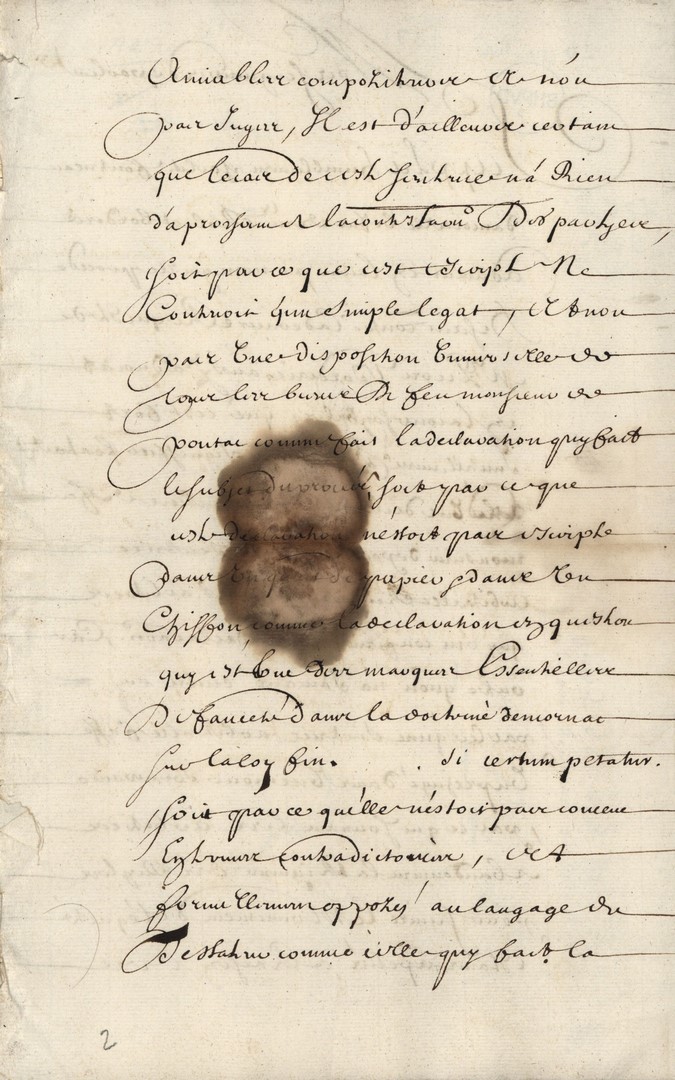 Amiablem compoziteurs et non
par Juges, Il est d'ailleurs certain
que le cas de cest sentence n'a Rien
d'aprochant la contestaon Des parties,
soit par ce que cest escript Ne
Contenoit qun simple legat, et non
par Une disposition Universelle de
tous les biens De feu monsieur de
pontac comme fait la declaration quy fait
le subjet du procés, soit par ce que
cest declaration n'estoit pas escripte
dans Un de papier, dans Un
Chiffon comme la declaration en question
quy est Une des marques Essentielles
De fauceté dans la doctrine de mornac
sur la loy fin. si certum petatur.
soit par ce quelle n'estoit pas conceue
En termes contradictoires, et
formellement oppozés au langage du
Testateur comme celle quy fait la
2